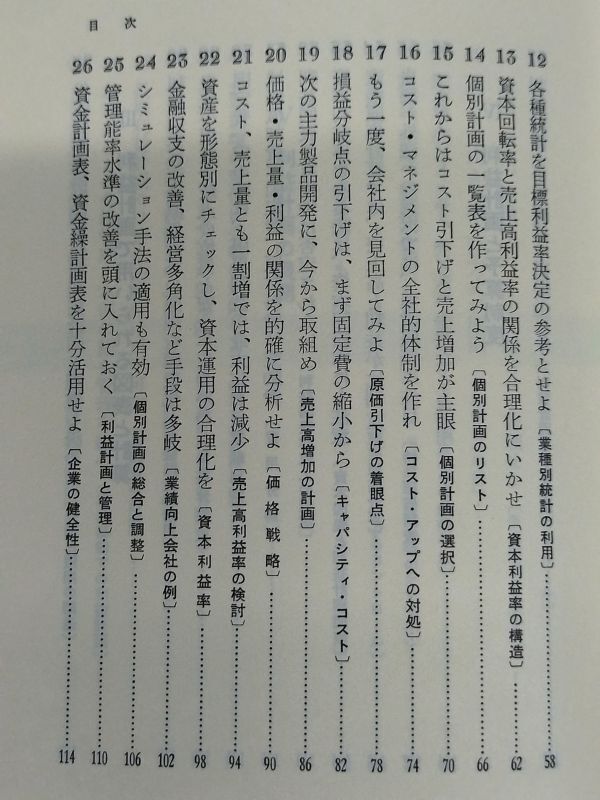 目次
12 各種統計を目標利益率決定の参考とせよ〔業種別統計の利用〕……58
13 資本回転率と売上高利益率の関係を合理化にいかせ〔資本利益率の構造〕……62
14 個別計画の一覧表を作ってみよう〔個別計画のリスト〕……66
15 これからはコスト引下げと売上増加が主眼〔個別計画の選択〕……70
16 コスト・マネジメントの全社的体制を作れ〔コスト・アップへの対処〕……74
17 もう一度、会社内を見回してみよ〔原価引下げの着眼点〕……78
18 損益分岐点の引下げは、まず固定費の縮小から〔キャパシティ・コスト〕……82
19 次の主力製品開発に、今から取組め〔売上高増加の計画〕……86
20 価格・売上量・利益の関係を的確に分析せよ〔価格戦略〕……90
21 コスト、売上量とも一割増では、利益は減少〔売上高利益率の検討〕……94
22 資産を形態別にチェックし、資本運用の合理化を〔資本利益率〕……98
23 金融収支の改善、経営多角化など手段は多岐〔業績向上会社の例〕……102
24 シミュレーション手法の適用も有効〔個別計画の総合と調整〕……106
25 管理能率水準の改善を頭に入れておく〔利益計画と管理〕……110
26 資金計画表、資金繰計画表を十分活用せよ〔企業の健全性〕……114